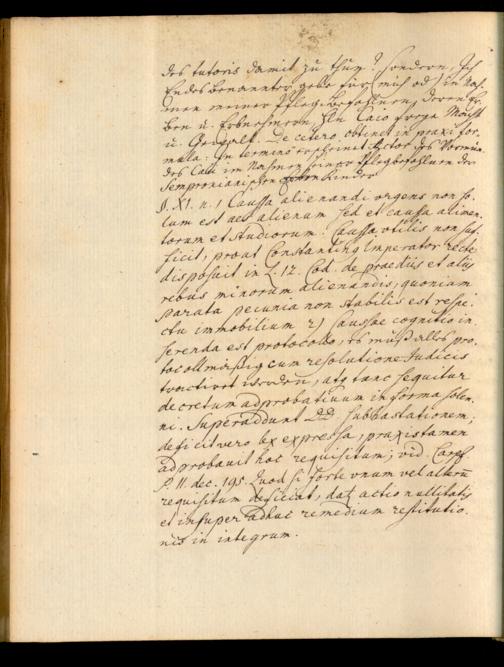 des tutoris damit zu thun? sondern, Ich
Endes benannter gebe für mich od in Nah-
men meiner Pfleg-Befohlenen, deren Er-
ben u. Erbnehmern, Hln Caio hierzu Macht
u. Gewalt. De cetero obtinet in praxi for-
mula: In termino erscheinet Actor des Vormun-
des Caii im Nahmen seiner Pflegbefohlenen der
Sempronianischen Kinder
§. XI. n. 1 Caussa alienandi urgens non so-
lum est aes alienum sed et caussa alimen-
torum et studiorum. Caussa utilis non suf-
ficit, prout Constantinq Imperator recte
disposuit in L. 12. Cod. de praediis et aliis
rebus minorum alienandis, quoniam
parata pecunia non stabilis est respe-
ctu immobilium 2) Caussae cognitio in
serenda est protocollo, es muß alles pro-
tocollmäßig cum resolutione Judicis
tractirt werden, atq tunc sequitur
decretum adprobativum in forma solen-
ni. Superaddunt DD. subhastationem;
deficit vero lex expressa, praxis tamen
adprobavit hoc requisitum; vid. Carpz
P. II. dec. 195. Quod si forte unum vel alterū
requisitum deficiat, dat actio nullitatis
et insuper adhuc remedium restitutio
nis in integrum.